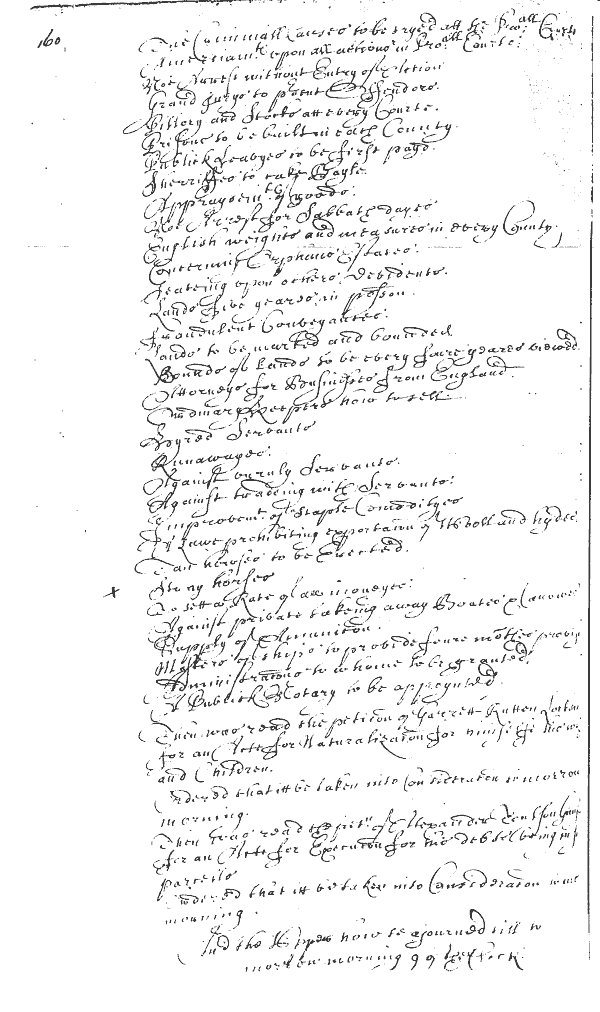 160
The Criminall Causes to be tryed att the Pro:all Courts
Amerciamts upon all actions in Pro:all Courts:
Noe Arrest without Entry of Action
Grand Jurys to prsent Offendors.
Pillory and Stocks att every Courte.
Prisons to be built in each County.
Publick Leavyes to be first payd.
Sherriffes to take Bayle.
Appraysemts of goods.
Noe Arrest for Sabbath dayes
English weights and measures in every County,
Concerning Orphans Estates.
Seateing upon others devidents.
Lands five yeares in posson.
Fraudulent Conveyances.
Lands to be marked and bounded
Bounds of Lands to be every foure yeares viewed.
Attorneys for Businesses from England.
Ordinary Keepers how to sell.
Hyred Servants
Runawayes.
Against unruly Servants.
Against tradeing with Servants.
Improvemt of Staple Comodityes
A Lawe prohibiting exportacon of Wooll and hydes.
Tan howses to be Erected.
x Stray horses
To sett a Rate of Law moneyes:
Against private takeing away Boates &
Supply of Amunicon.
Masters of Ships to provide foure mothes provis
Administracons to whome to be granted.
A Publick Notary to be appoynted
Then was read the peticon of Garrett
for an Acte for Naturalizacon for himselfe his wi
and Children.
Ordered that itt be taken into Consideracon to morrow
morning.
Then was read the petn of Alexander
for an Acte for Execucon for his debts being in
parcells
Ordered that itt be taken into Consideracon to
morning.
And the Upper howse adjourned till to
morrow morning 9 of the Clock.